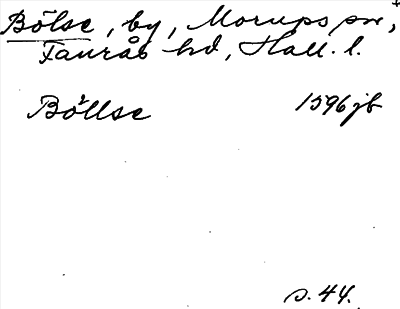 Bölse, by, Morups sn, +
Faurås hd, Hall. l.
Böllse 1596 jb
s. 44.